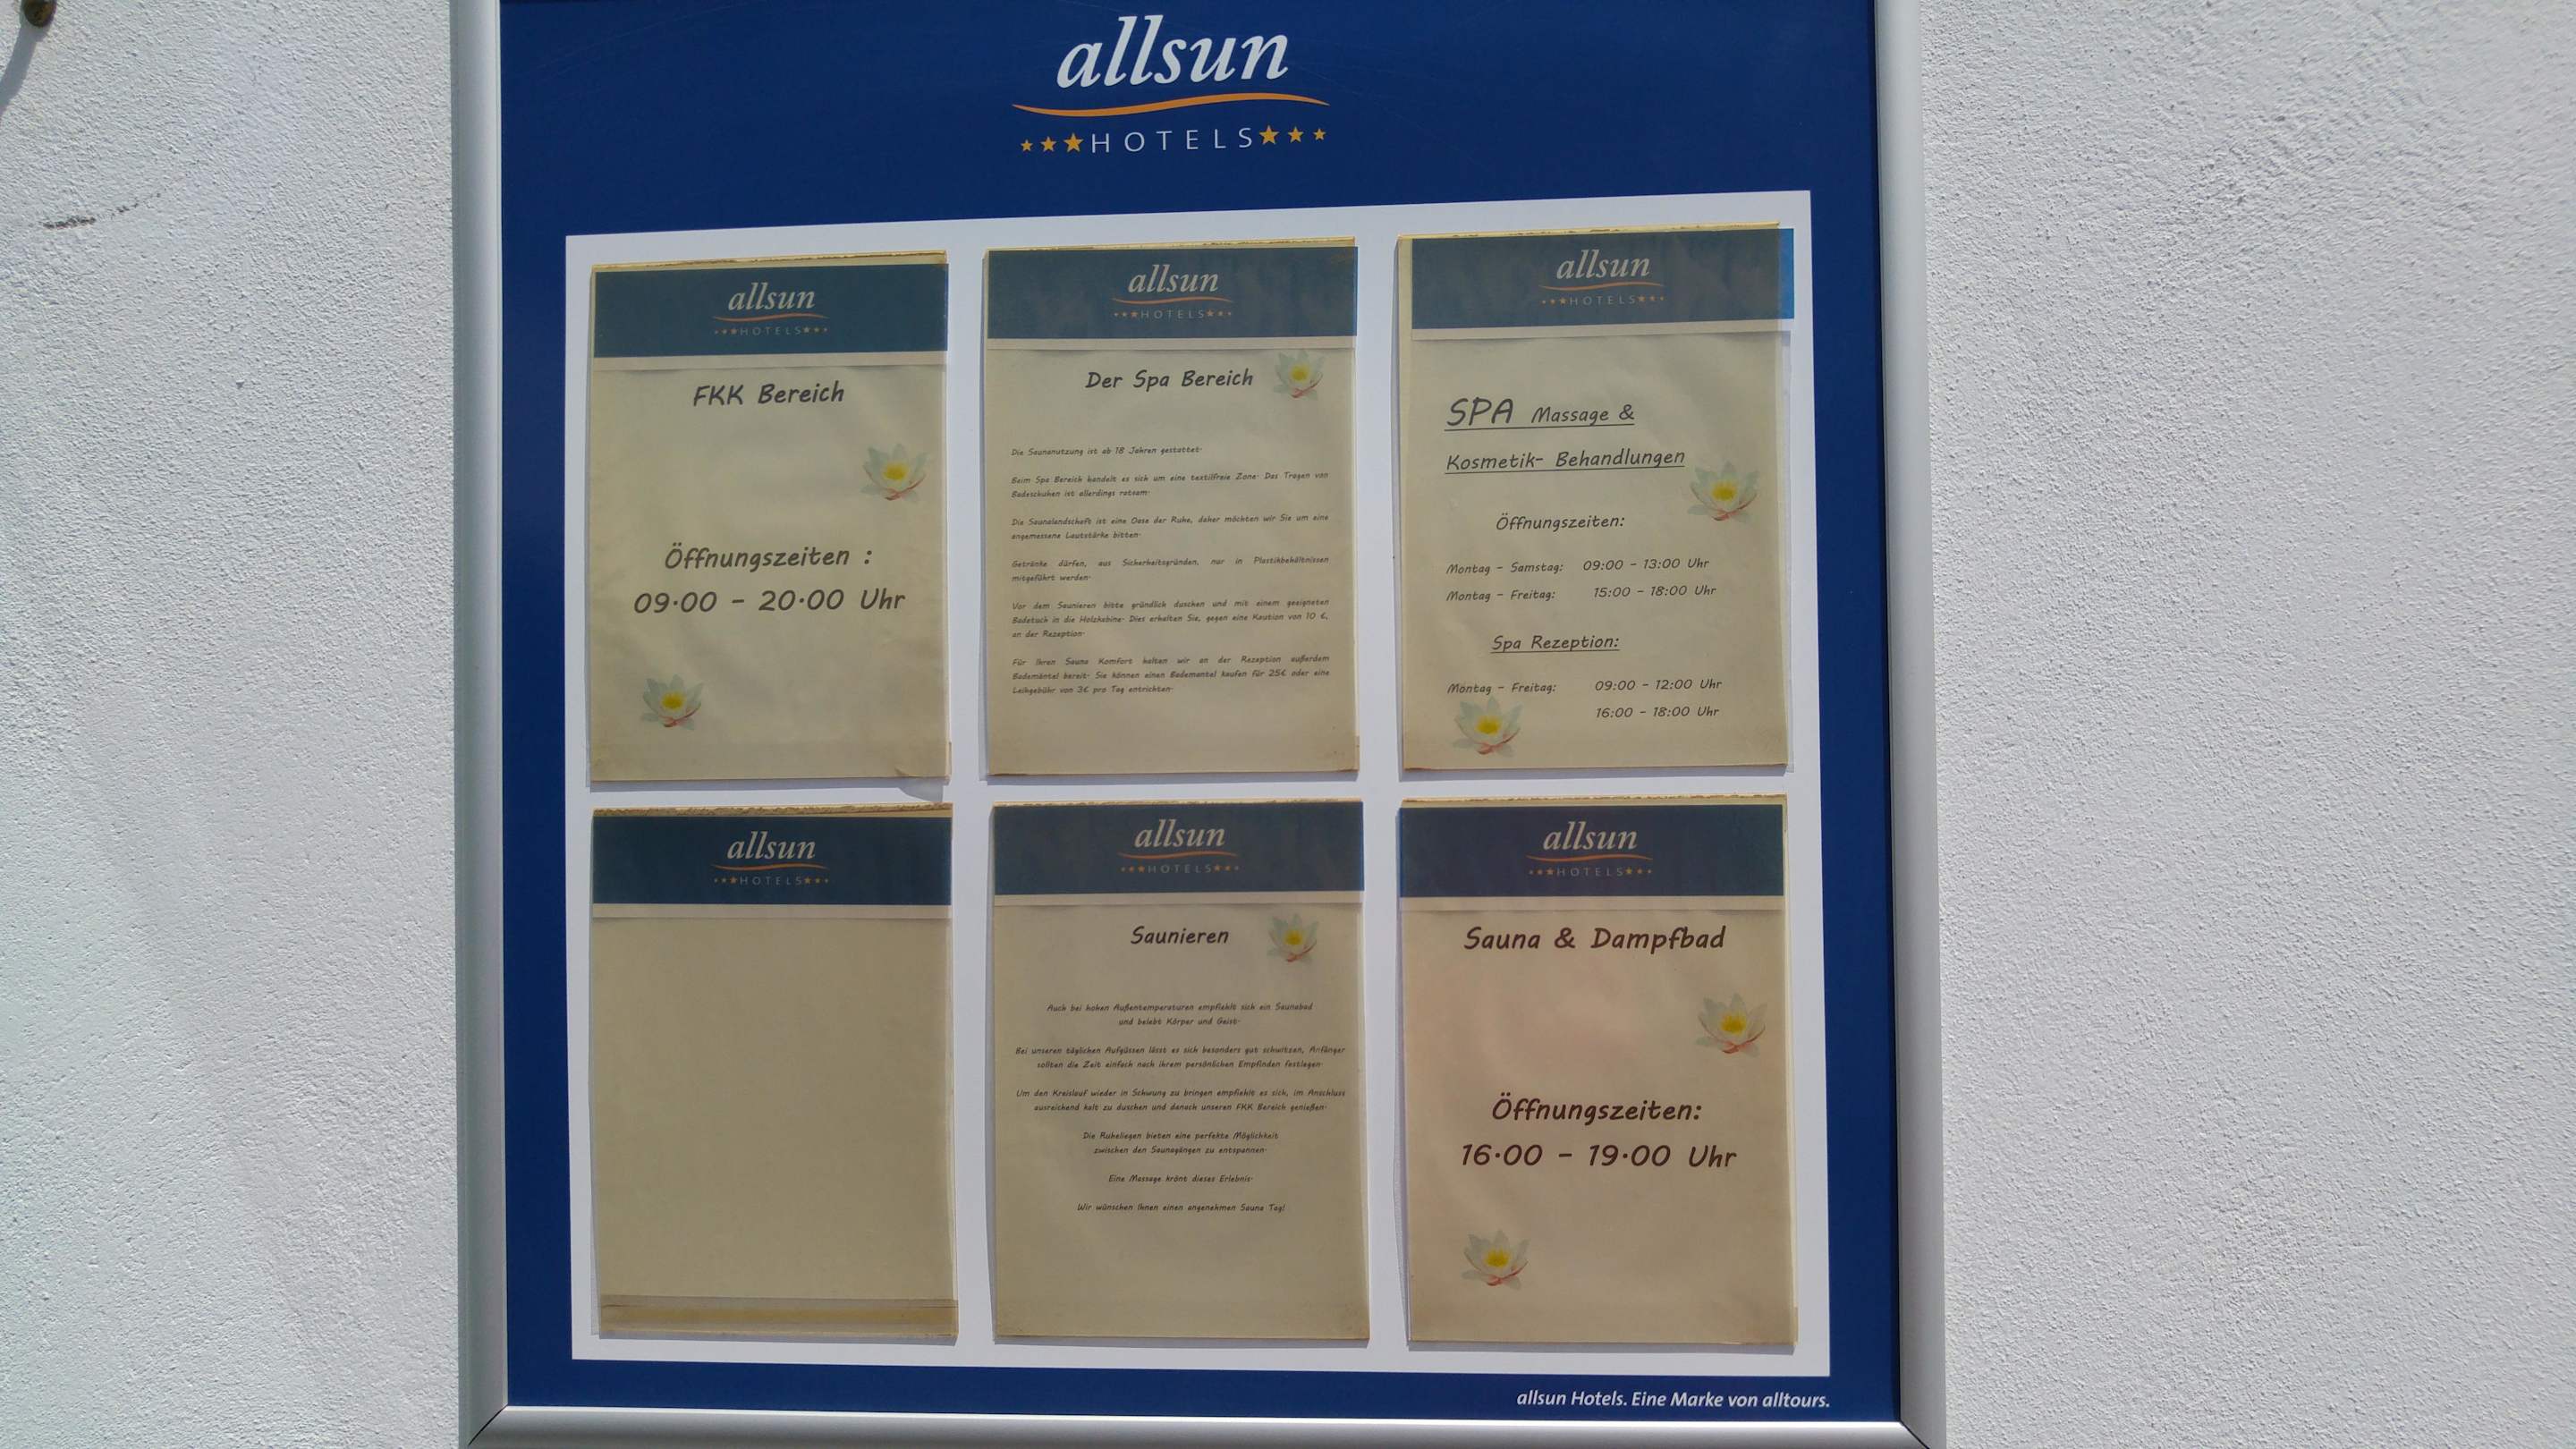 allsun
HOTELS
allsun
HOTELS
FKK Bereich
Öffnungszeiten :
09·00 - 20·00 Uhr
allsun
HOTELS
Der Spa Bereich
Die Saunanutzung ist ab 18 Jahren gestattet·
Beim Spa Bereich handelt es sich um eine textilfreie Zone· Das Tragen von
Badeschuhen ist allerdings ratsam·
Die Saunalandschaft ist eine Oase der Ruhe, daher möchten wir Sie um eine
angemessene Lautstärke bitten·
Getränke dürfen, aus Sicherheitsgründen, nur in Plastikbehältnissen
mitgeführt werden·
Vor dem Saunieren bitte gründlich duschen und mit einem geeigneten
Badetuch in die Holzkabine· Dies erhalten Sie, gegen eine Kaution von 10 €,
an der Rezeption·
Für Ihren Sauna Komfort halten wir an der Rezeption außerdem
Bademäntel bereit· Sie können einen Bademantel kaufen für 25€ oder eine
Leihgebühr von 3€ pro Tag entrichten·
allsun
HOTELS
SPA Massage &
Kosmetik- Behandlungen
Öffnungszeiten:
Montag - Samstag: 09:00 - 13:00 Uhr
Montag - Freitag: 15:00 - 18:00 Uhr
Spa Rezeption:
Montag - Freitag: 09:00 - 12:00 Uhr
16:00 - 18:00 Uhr
allsun
HOTELS
allsun
HOTELS
Saunieren
Auch bei hohen Außentemperaturen empfiehlt sich ein Saunabad
und belebt Körper und Geist·
Bei unseren täglichen Aufgüssen lässt es sich besonders gut schwitzen, Anfänger
sollten die Zeit einfach nach ihrem persönlichen Empfinden festlegen·
Um den Kreislauf wieder in Schwung zu bringen empfiehlt es sich, im Anschluss
ausreichend kalt zu duschen und danach unseren FKK Bereich genießen·
Die Ruheliegen bieten eine perfekte Möglichkeit
zwischen den Saunagängen zu entspannen·
Eine Massage krönt dieses Erlebnis·
Wir wünschen Ihnen einen angenehmen Sauna Tag!
allsun
HOTELS
Sauna & Dampfbad
Öffnungszeiten:
16·00 - 19·00 Uhr
allsun Hotels. Eine Marke von alltours.